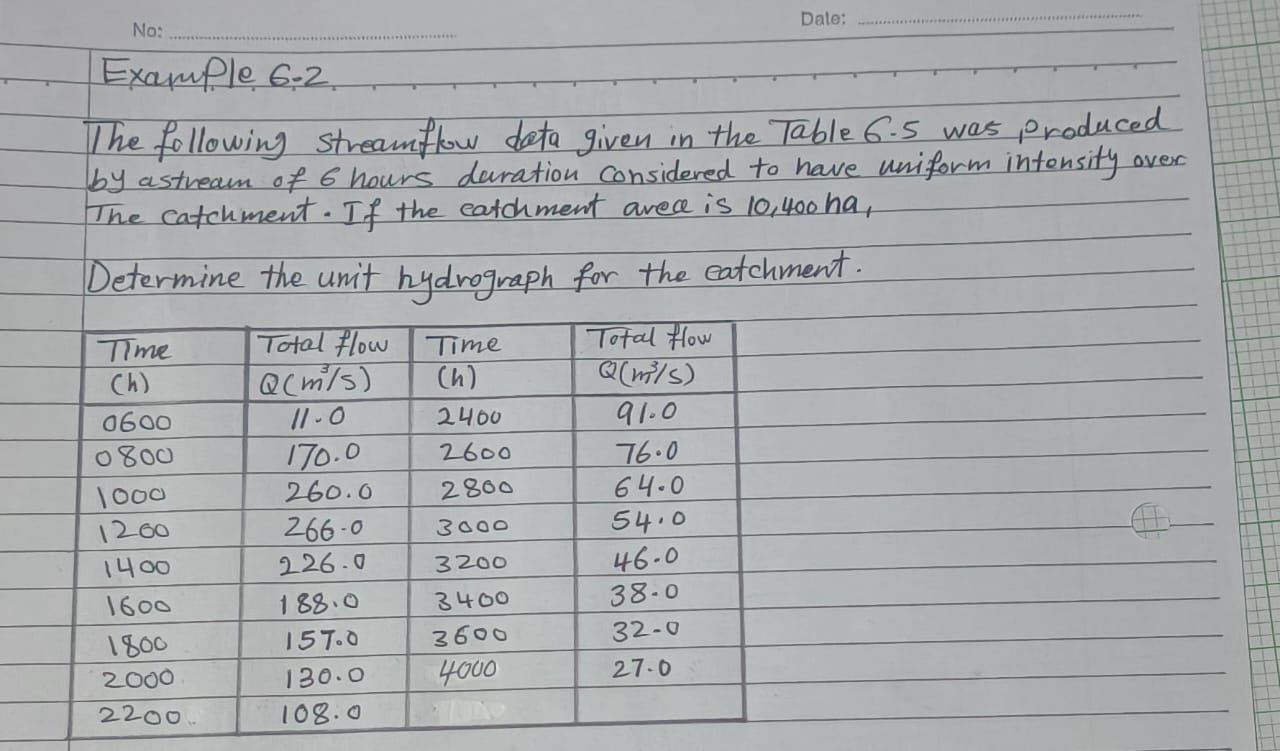 No:
Date:
Example 6.2
The following streamflow data given in the Table 6.5 was produced
by a stream of 6 hours duration considered to have uniform intensity over
The catchment. If the catchment area is 10,400 ha,
Determine the unit hydrograph for the catchment.
Time Total flow Time Total flow
(h) Q(m³/s) (h) Q(m³/s)
0600 11.0 2400 91.0
0800 170.0 2600 76.0
1000 260.0 2800 64.0
1200 266.0 3000 54.0
1400 226.0 3200 46.0
1600 188.0 3400 38.0
1800 157.0 3600 32.0
2000 130.0 4000 27.0
2200 108.0